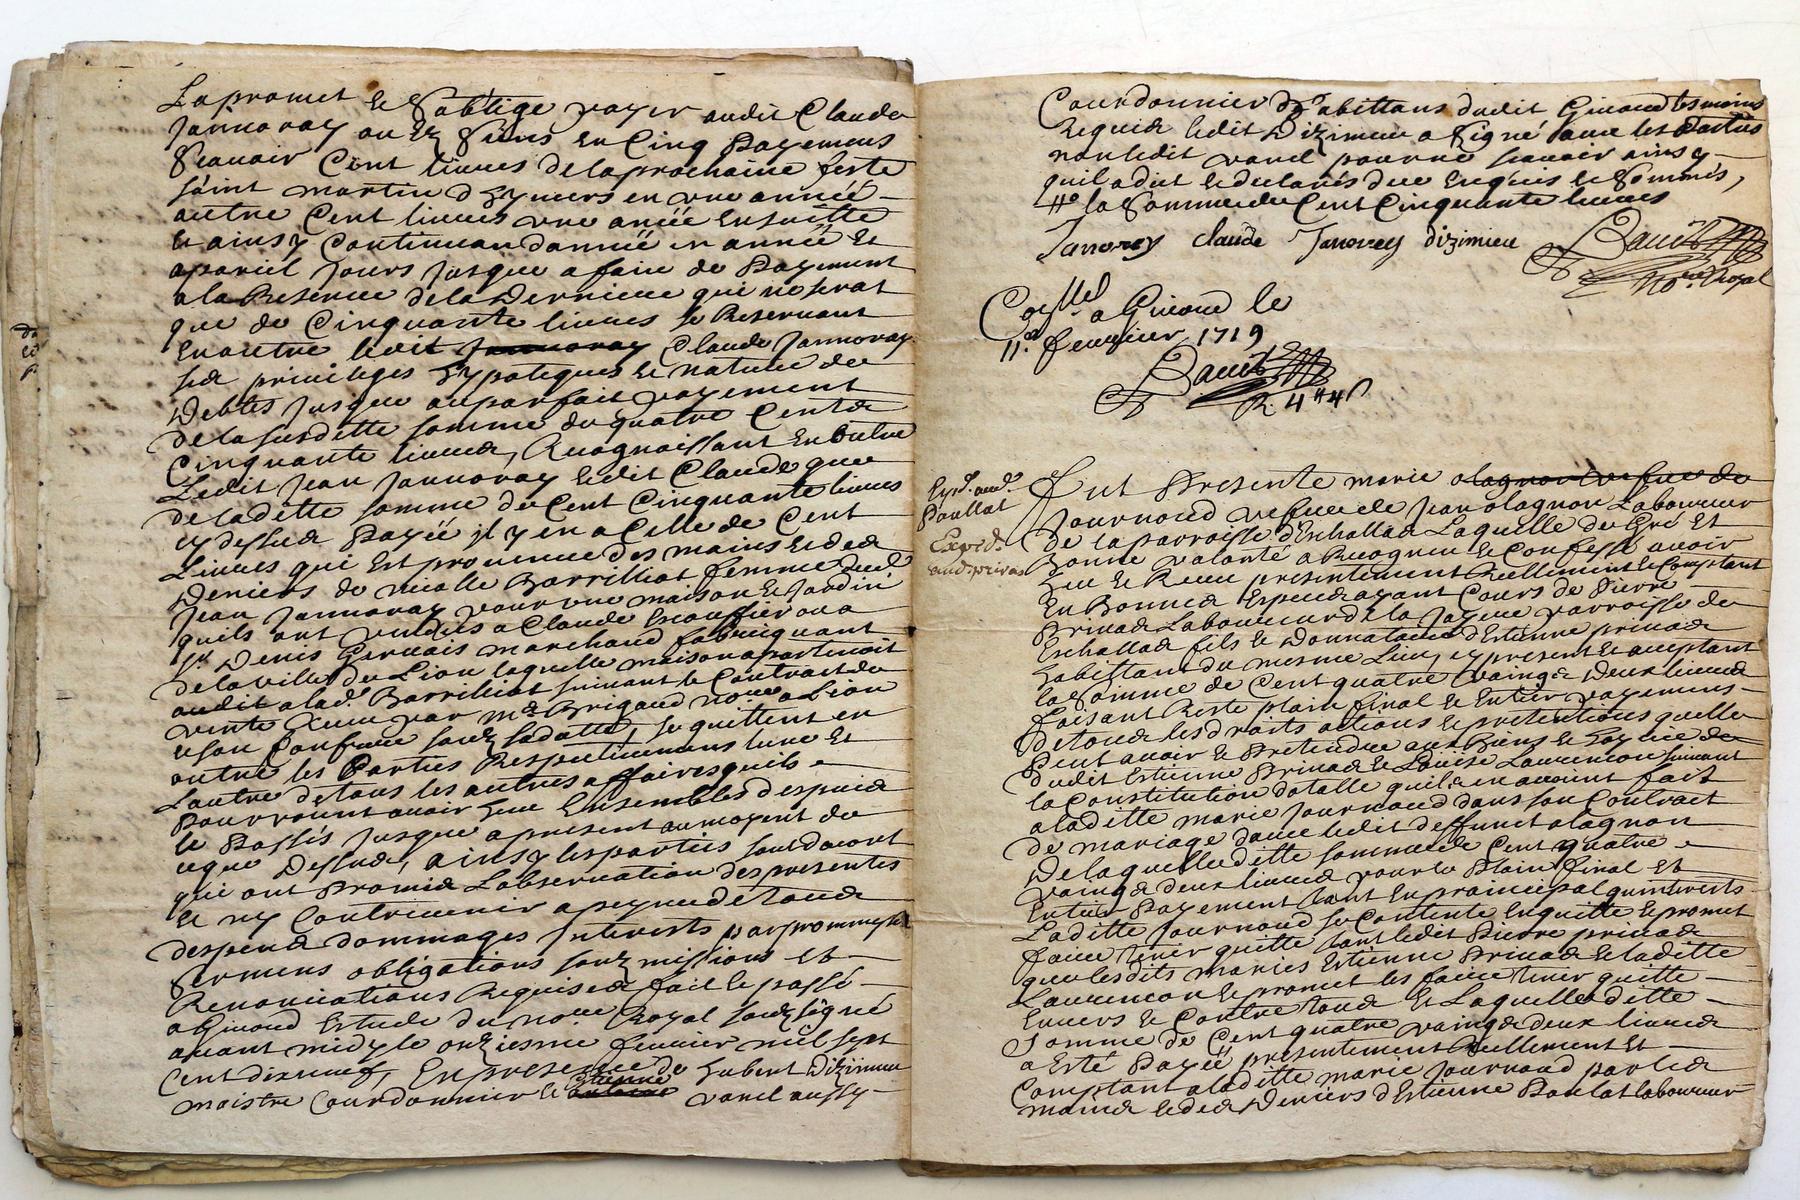 La promet & S'oblige payer audit Claude
Jannoray ou Ez Siens en Cinq Payemens
Scauoir Cent liures de la prochaine feste
saint martin d'hyuers en vne année
autre Cent liures vne anée ensuitte
& ainsy Continuer d'année en année Et
a pareil Jours Jusque a faire de Payement
a la Reserue de la Derniere qui ne serat
que de Cinquante liures se Reseruant
En outre ledit Claude Jannoray
ses priuileges hypoteques & nature de
Debtes Jusque au parfait payement
de la susditte somme de quatre Cents
Cinquante liures, Recognoissant En Outre
Ledit Jean Jannoray ledit Claude que
de laditte somme de Cent Cinquante liures
cy dessus Payéé il y en a Celle de Cent
Liures qui Est prouenue des mains & des
Deniers de Barrilliat femme dud.
Jean Jannoray pour vne maison & Jardin
quils ont vendus a Claude
Sr. Denis Geruais marchand fabriquant
de la ville de Lion laquelle maison apartenoit
audit a lad. Barrilliat suiuant le Contract de
vente Receu par me. Brigaud nore. a Lion
& son Confrere souz sa datte, se quittent en
outre les Parties Respectiuement lune Et
Lautre de tous les autres affaires quils
Pourroient auoir heu Ensembles despuis
le Passés Jusque a present au moyent de
ceque Dessus, ainsy les parties sont d'acort
qui ont Promis Lobseruation des presentes
& ny Contreuenir a peyne de tous
despens dommages Interests par promesse
Sermens obligations souz missions et
Renonciations Requises fait & passé
a Giuord Estude du nore. Royal souz signé
auant midy le onziesme feurier mil sept
Cent dixneuf, En presence de hubert Dizimieu
maistre Courdonnier & Etienne varel aussy
Courdonnier habittans dudit Giuord tesmoins
Requis ledit Dizimieu a signé auec les Parties
non ledit varel pour ne scauoir ainsy
quil a dit & declarés de ce Enquis & Sommés,
la Somme de Cent Cinquante liures
Janorey claude Janorey dizimieu
Nore. Royal
Conllé. a Giuord le
11e. feurier 1719
R. 4tt 4s
Expd. aud.
Paullat
Expd.
aud. privas
Fut Presente marie
Journoud vefue de Jean olagnon Laboureur
de la parroisse d'Eschallas Laquelle de Gré Et
Bonne volanté a Recogneu & Confessé auoir
heu & Receu presentement Reellement & Comptant
En Bonnes Especes ayant Cours de Pierre
Priuas Laboureur de la parroisse de
Eschallas fils & Donnataire d'Estienne priuas
habittant du mesme Lieu, cy present & acceptant
la Somme de Cent quatre vaings Deux liures
faisant Reste plain final & Entier payement
de tous les droits actions & pretentions quelle
Peut auoir & Pretendre aux Biens & hoyrie de
dudit Estienne Priuas & Louise Laurencon suiuant
la Constitution dotalle quils en auoient fait
a laditte marie Journoud dans son Contract
de mariage d'auec ledit deffunct olagnon
De laquelle ditte somme de Cent quatre
vaings deux liures pour le Plain final Et
Entier Payement tant En principal quinterests
Laditte Journoud se Contente En quitte & promet
faire tenir quitte tant ledit Pierre priuas
que lesdits mariés Estienne Priuas & laditte
Laurencon & promet les faire tenir quitte
Enuers & Contre tous & Laquelle ditte
Somme de Cent quatre vaings deux liures
a Esté Payéé presentement Reellement Et
Comptant a laditte marie Journoud par les
mains & des Deniers d'Estienne Paulat laboureur